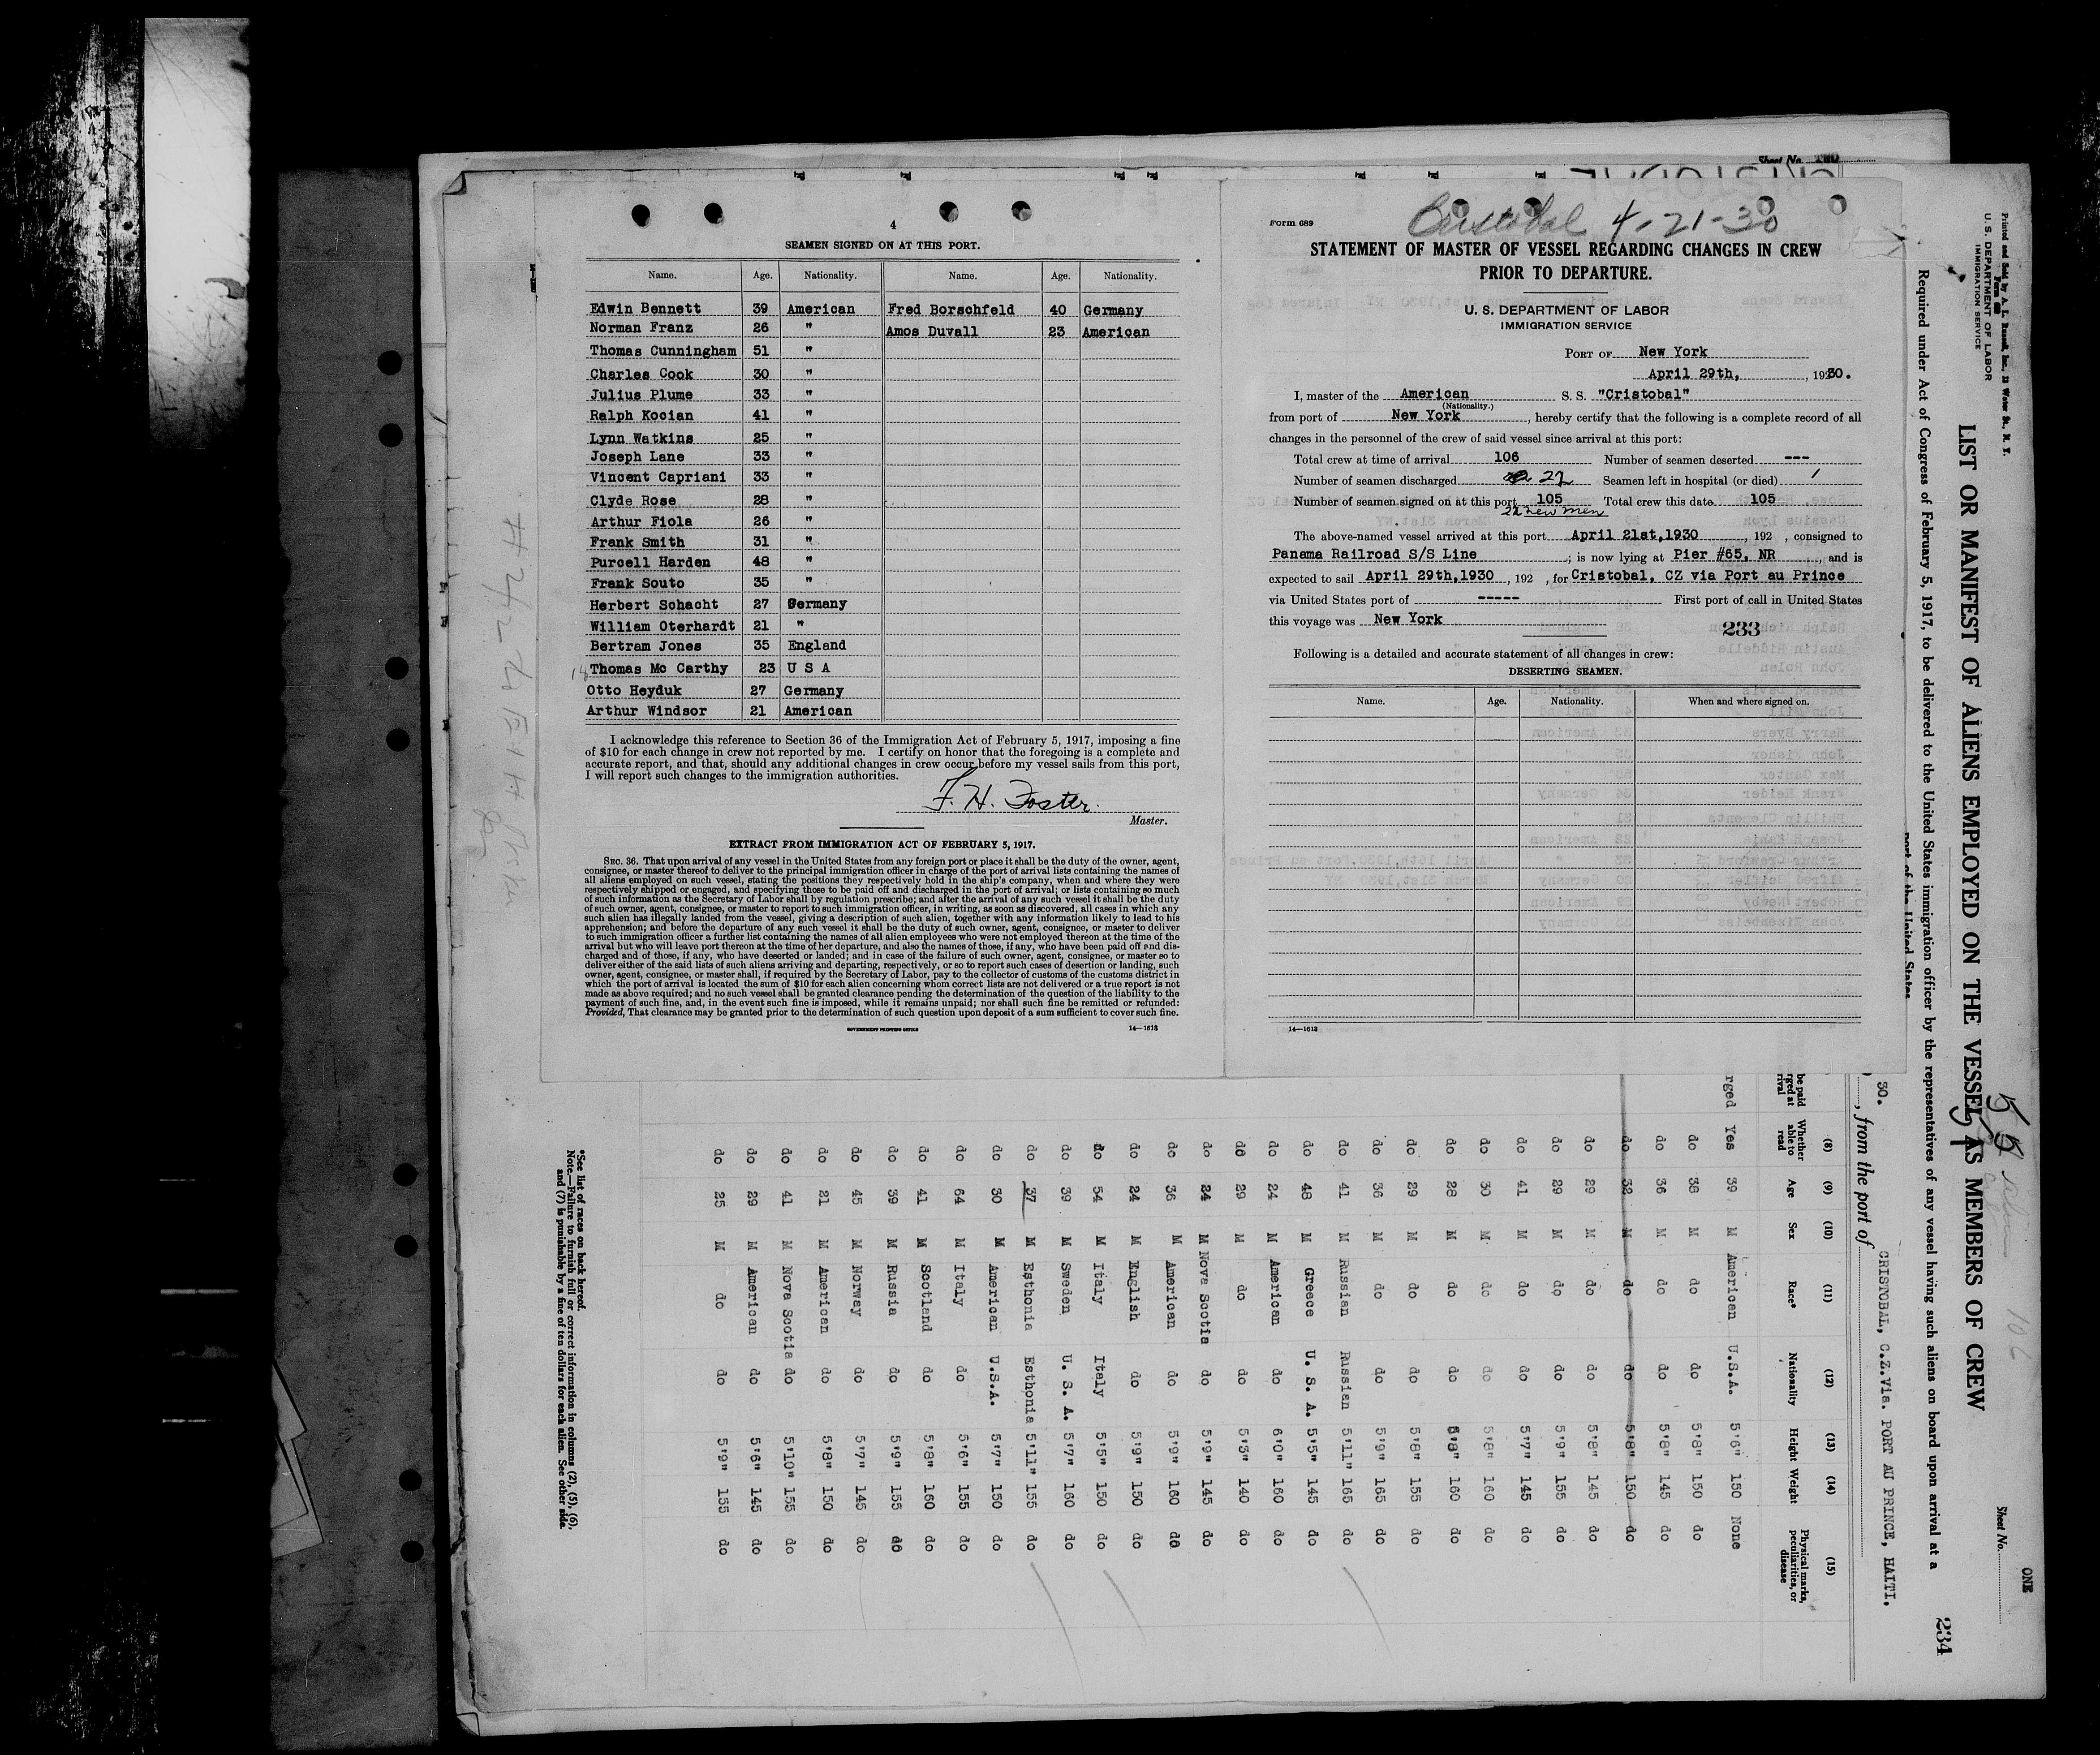 4
SEAMEN SIGNED ON AT THIS PORT.
Name. Age. Nationality. Name. Age. Nationality.
Edwin Bennett 39 American Fred Borschfeld 40 Germany
Norman Franz 26 " Amos Duvall 23 American
Thomas Cunningham 51 "
Charles Cook 30 "
Julius Plume 33 "
Ralph Kocian 41 "
Lynn Watkins 25 "
Joseph Lane 33 "
Vincent Capriani 33 "
Clyde Rose 28 "
Arthur Fiola 26 "
Frank Smith 31 "
Purcell Harden 48 "
Frank Souto 35 "
Herbert Schacht 27 Germany
William Oterhardt 21 "
Bertram Jones 35 England
Thomas Mc Carthy 23 U S A
Otto Heyduk 27 Germany
Arthur Windsor 21 American
I acknowledge this reference to Section 36 of the Immigration Act of February 5, 1917, imposing a fine
of $10 for each change in crew not reported by me. I certify on honor that the foregoing is a complete and
accurate report, and that, should any additional changes in crew occur before my vessel sails from this port,
I will report such changes to the immigration authorities.
F. H. Foster.
Master.
EXTRACT FROM IMMIGRATION ACT OF FEBRUARY 5, 1917.
SEC. 36. That upon arrival of any vessel in the United States from any foreign port or place it shall be the duty of the owner, agent,
consignee, or master thereof to deliver to the principal immigration officer in charge of the port of arrival lists containing the names of
all aliens employed on such vessel, stating the positions they respectively hold in the ship's company, when and where they were
respectively shipped or engaged, and specifying those to be paid off and discharged in the port of arrival; or lists containing so much
of such information as the Secretary of Labor shall by regulation prescribe; and after the arrival of any such vessel it shall be the duty
of such owner, agent, consignee, or master to report to such immigration officer, in writing, as soon as discovered, all cases in which any
such alien has illegally landed from the vessel, giving a description of such alien, together with any information likely to lead to his
apprehension; and before the departure of any such vessel it shall be the duty of such owner, agent, consignee, or master to deliver
to such immigration officer a further list containing the names of all alien employees who were not employed thereon at the time of the
arrival but who will leave port thereon at the time of her departure, and also the names of those, if any, who have been paid off and dis-
charged and of those, if any, who have deserted or landed; and in case of the failure of such owner, agent, consignee, or master so to
deliver either of the said lists of such aliens arriving and departing, respectively, or so to report such cases of desertion or landing, such
owner, agent, consignee, or master shall, if required by the Secretary of Labor, pay to the collector of customs of the customs district in
which the port of arrival is located the sum of $10 for each alien concerning whom correct lists are not delivered or a true report is not
made as above required; and no such vessel shall be granted clearance pending the determination of the question of the liability to the
payment of such fine, and, in the event such fine is imposed, while it remains unpaid; nor shall such fine be remitted or refunded:
Provided, That clearance may be granted prior to the determination of such question upon deposit of a sum sufficient to cover such fine.
GOVERNMENT PRINTING OFFICE 14—1613
Form 689
Cristobal 4-21-30
STATEMENT OF MASTER OF VESSEL REGARDING CHANGES IN CREW
PRIOR TO DEPARTURE.
U. S. DEPARTMENT OF LABOR
IMMIGRATION SERVICE
PORT OF New York
April 29th, , 1930.
I, master of the American S. S. "Cristobal"
(Nationality.)
from port of New York, hereby certify that the following is a complete record of all
changes in the personnel of the crew of said vessel since arrival at this port:
Total crew at time of arrival 106 Number of seamen deserted ---
Number of seamen discharged 22 Seamen left in hospital (or died) 1
Number of seamen signed on at this port 105 Total crew this date 105
22 new men
The above-named vessel arrived at this port April 21st,1930, 192 , consigned to
Panama Railroad S/S Line; is now lying at Pier #65, NR and is
expected to sail April 29th,1930, 192 , for Cristobal, CZ via Port au Prince
via United States port of ----- First port of call in United States
this voyage was New York
233
Following is a detailed and accurate statement of all changes in crew:
DESERTING SEAMEN.
Name. Age. Nationality. When and where signed on.
14—1613
Sheet No. TWO
Printed and Sold by A. L. Russell, Inc., 12 Water St., N. Y.
U. S. DEPARTMENT OF LABOR
IMMIGRATION SERVICE
Sheet No. ONE
234
106
LIST OR MANIFEST OF ALIENS EMPLOYED ON THE VESSEL AS MEMBERS OF CREW
Required under Act of Congress of February 5, 1917, to be delivered to the United States immigration officer by the representatives of any vessel having such aliens on board upon arrival at a
port of the United States
30. , from the port of CRISTOBAL, C.Z.Via. PORT AU PRINCE, HAITI.
(8) (9) (10) (11) (12) (13) (14) (15)
Whether able to read Age Sex Race* Nationality Height Weight Physical marks, peculiarities, or disease
rged Yes 39 M American U.S.A. 5'6" 150 None
do 38 M do do 5'8" 150 do
do 36 M do do 5'8" 145 do
do 32 M do do 5'8" 150 do
do 29 M do do 5'8" 145 do
do 29 M do do 5'9" 155 do
do 41 M do do 5'7" 145 do
do 30 M do do 5'8" 160 do
do 28 M do do 5'8" 160 do
do 29 M do do 5'8" 155 do
do 36 M do do 5'9" 165 do
do 41 M Russian Russian 5'11" 165 do
do 48 M Greece U. S. A. 5'5" 145 do
do 24 M American do 6'0" 160 do
do 29 M do do 5'3" 140 do
do 24 M Nova Scotia do 5'9" 145 do
do 36 M American do 5'9" 160 do
do 24 M English do 5'9" 150 do
do 54 M Italy Italy 5'5" 150 do
do 39 M Sweden U. S. A. 5'7" 160 do
do 37 M Esthonia Esthonia 5'11" 155 do
do 30 M American U.S.A. 5'7" 150 do
do 64 M Italy do 5'6" 155 do
do 41 M Scotland do 5'8" 160 do
do 39 M Russia do 5'9" 155 do
do 45 M Norway do 5'7" 145 do
do 21 M American do 5'8" 150 do
do 41 M Nova Scotia do 5'10" 155 do
do 29 M American do 5'6" 145 do
do 25 M do do 5'9" 155 do
*See list of races on back hereof.
Note.—Failure to furnish full or correct information in columns (2), (5), (6),
and (7) is punishable by a fine of ten dollars for each alien. See other side.